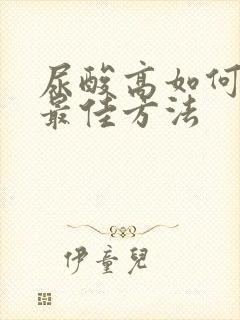 尿酸高如何
最佳方法
伊童兒